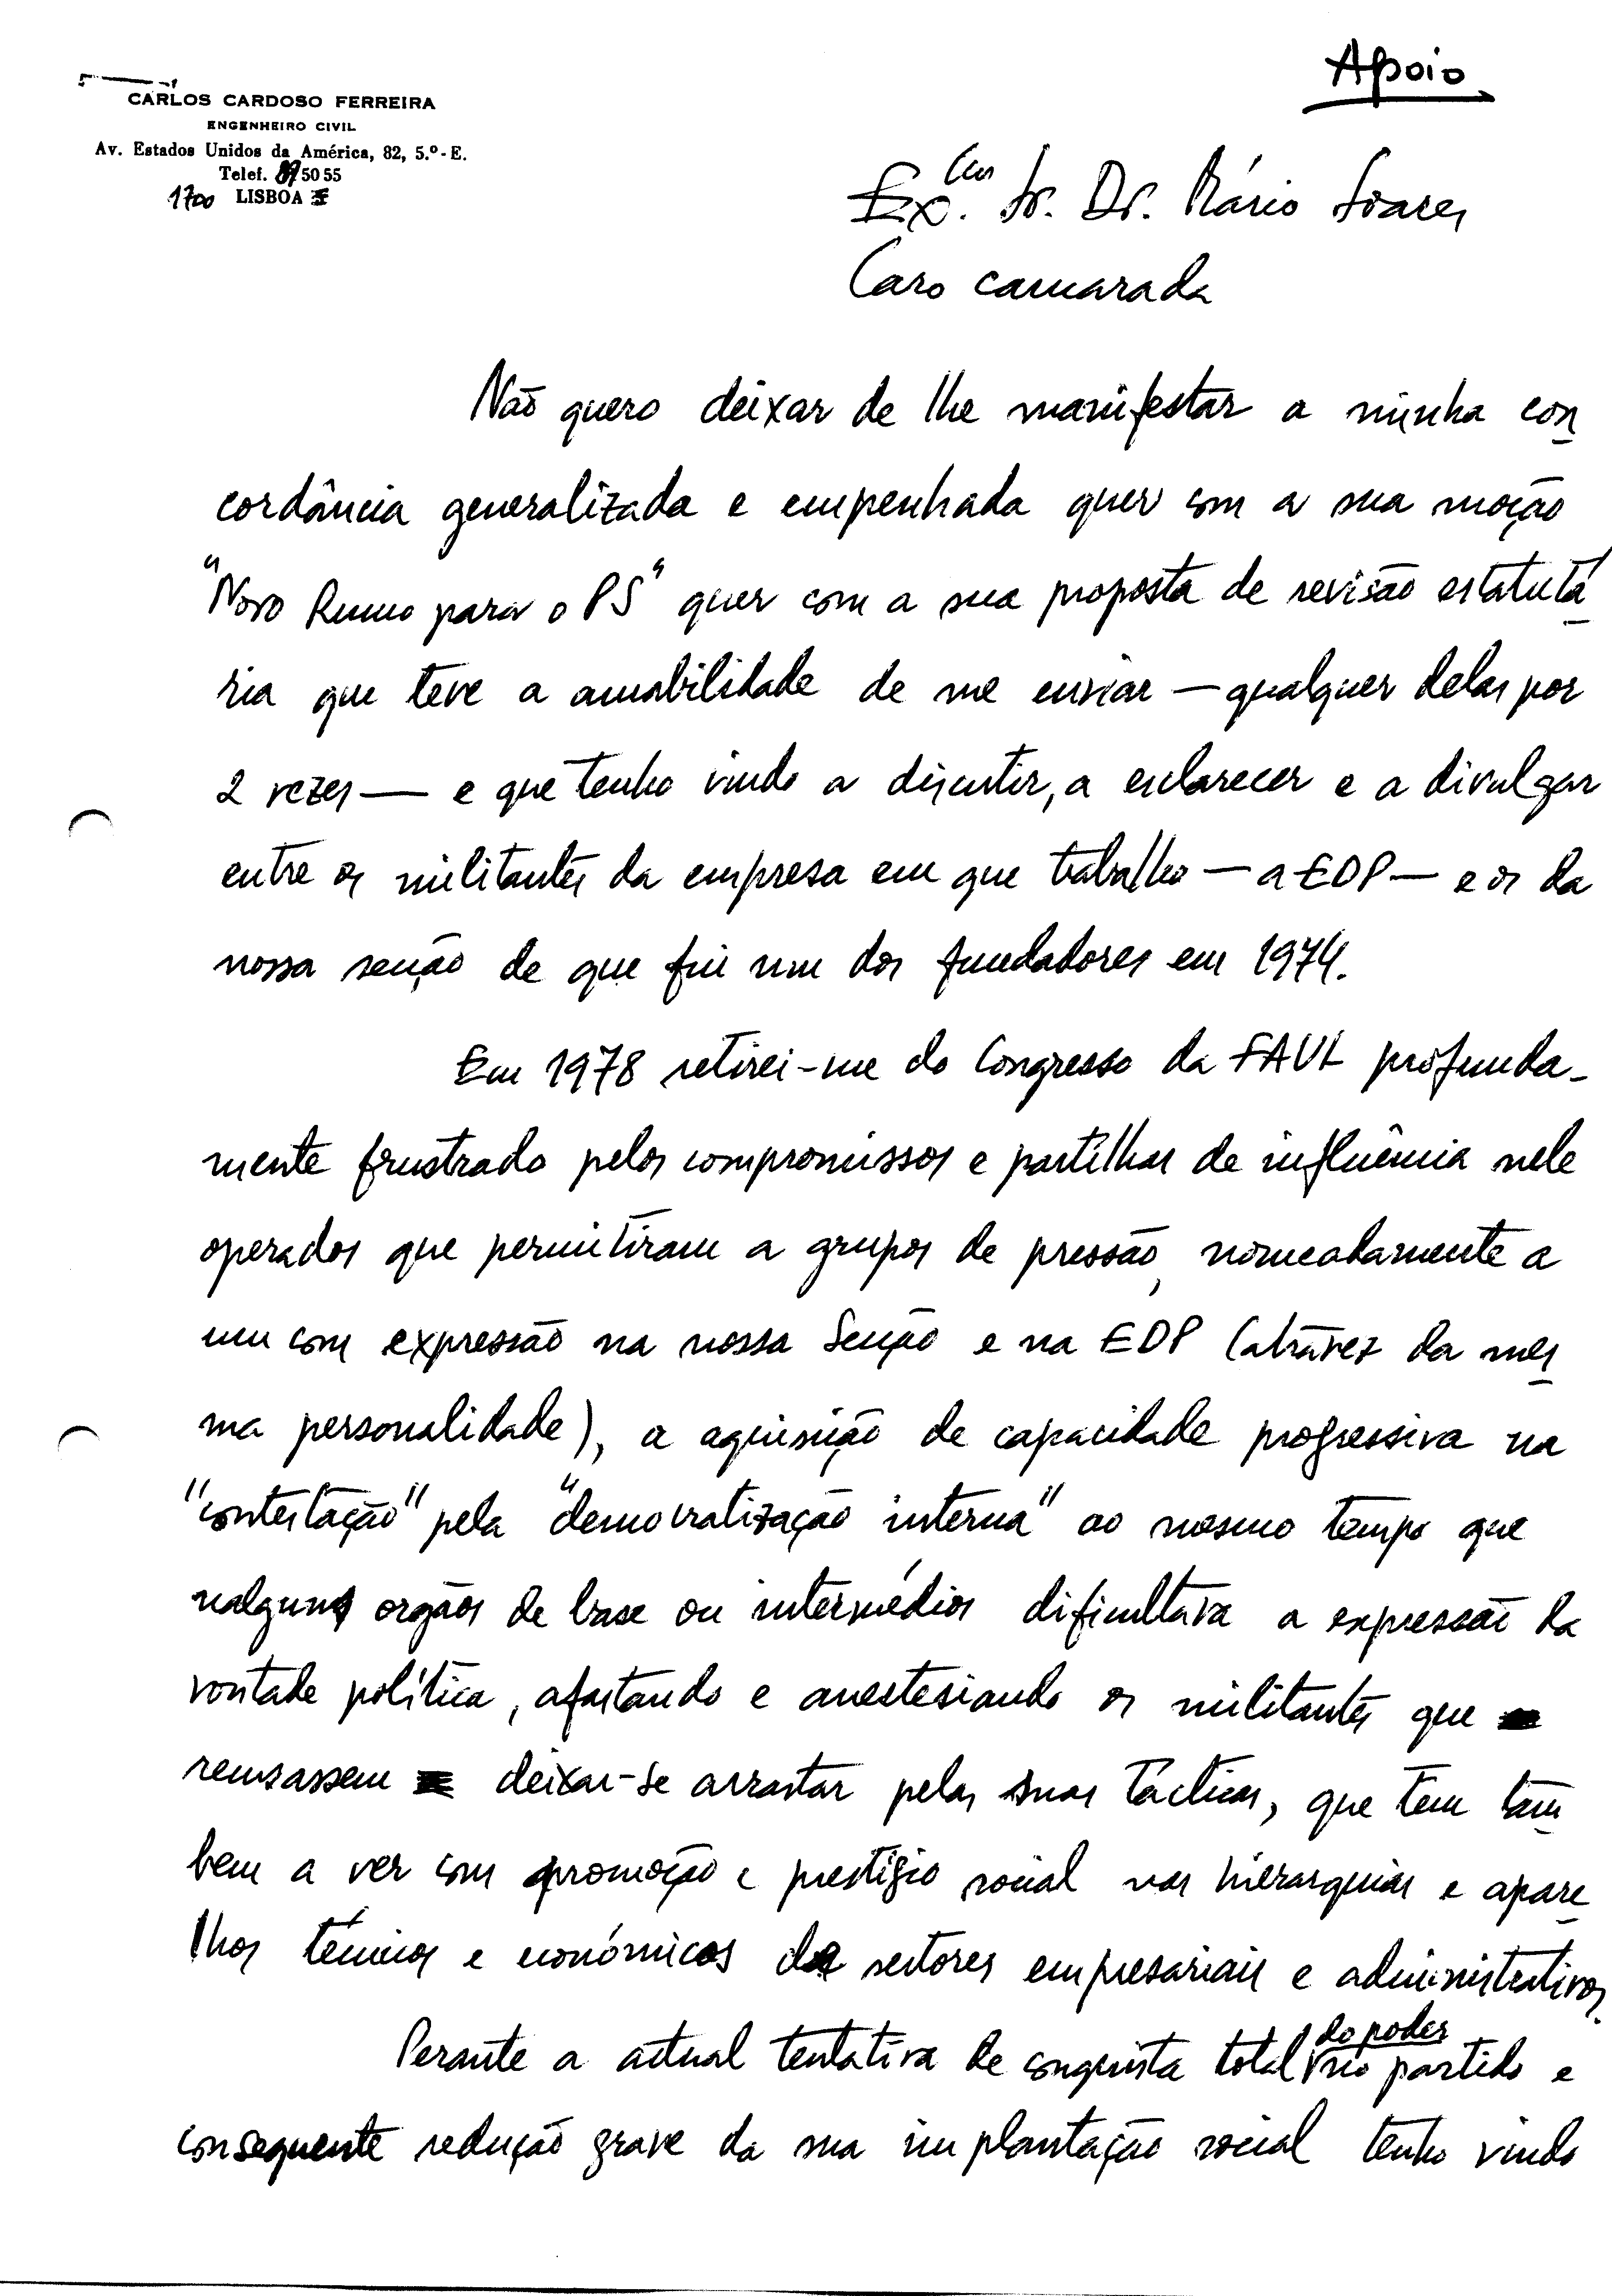 Apoio
CARLOS CARDOSO FERREIRA
ENGENHEIRO CIVIL
Av. Estados Unidos da América, 82, 5.º-E.
Telef. 89 50 55
1700 LISBOA
Ex.mo Sr. Dr. Mário Soares
Caro camarada
Não quero deixar de lhe manifestar a minha con
cordância generalizada e empenhada quer com a sua moção
"Novo Rumo para o PS" quer com a sua proposta de revisão estatutá
ria que teve a amabilidade de me enviar — qualquer delas por
2 vezes — e que tenho vindo a discutir, a esclarecer e a divulgar
entre os militantes da empresa em que trabalho — a EDP — e os da
nossa secção de que fui um dos fundadores em 1974.
Em 1978 retirei-me do Congresso da FAUL profunda-
mente frustrado pelos compromissos e partilhas de influência nele
operados que permitiram a grupos de pressão, nomeadamente a
um com expressão na nossa Secção e na EDP (atravez da mes
ma personalidade), a aquisição de capacidade progressiva na
"contestação" pela "democratização interna" ao mesmo tempo que
nalguns orgãos de base ou intermédios dificultava a expressão da
vontade política, afastando e anestesiando os militantes que
recusassem deixar-se arrastar pelas suas tácticas, que tem tam
bem a ver com promoção e prestígio social nas hierarquias e apare
lhos técnicos e económicos de sectores empresariais e administrativos.
Perante a actual tentativa de conquista total do poder no partido e
consequente redução grave da sua implantação social tenho vindo